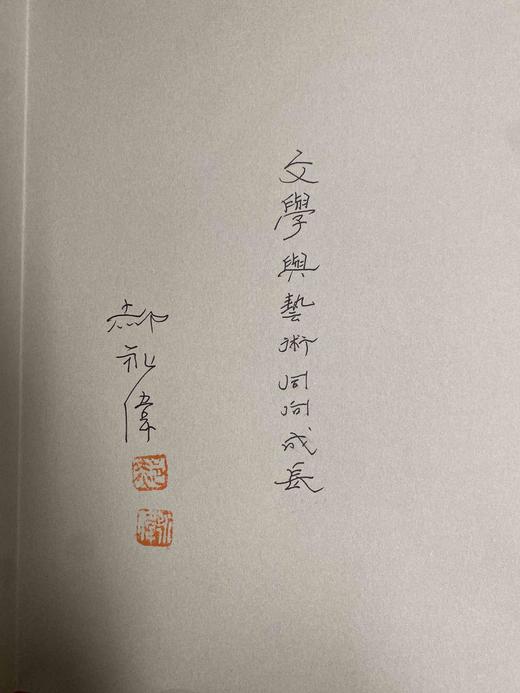 文學與藝術同向成長
郝礼偉